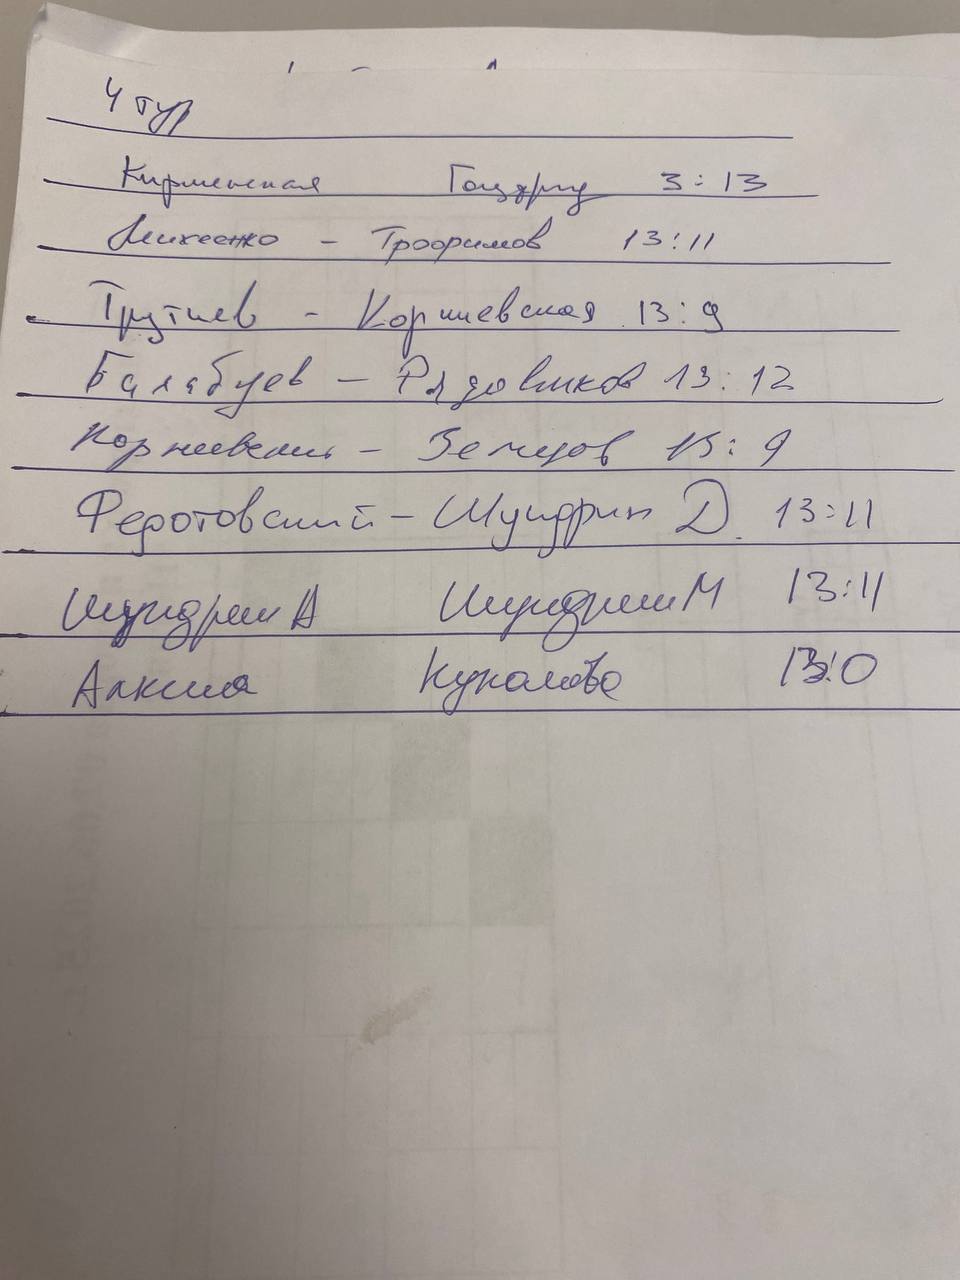 4 тур
Кирменская 3:13
Михеенко - Трофимов 13:11
Трутнев - Корниевская 13:9
Балабуев - Рядовиков 13:12
- Земцов 13:9
Федотовский - Шундрин Д. 13:11
Шундрин А Шундрин М 13:11
Куколева 13:0